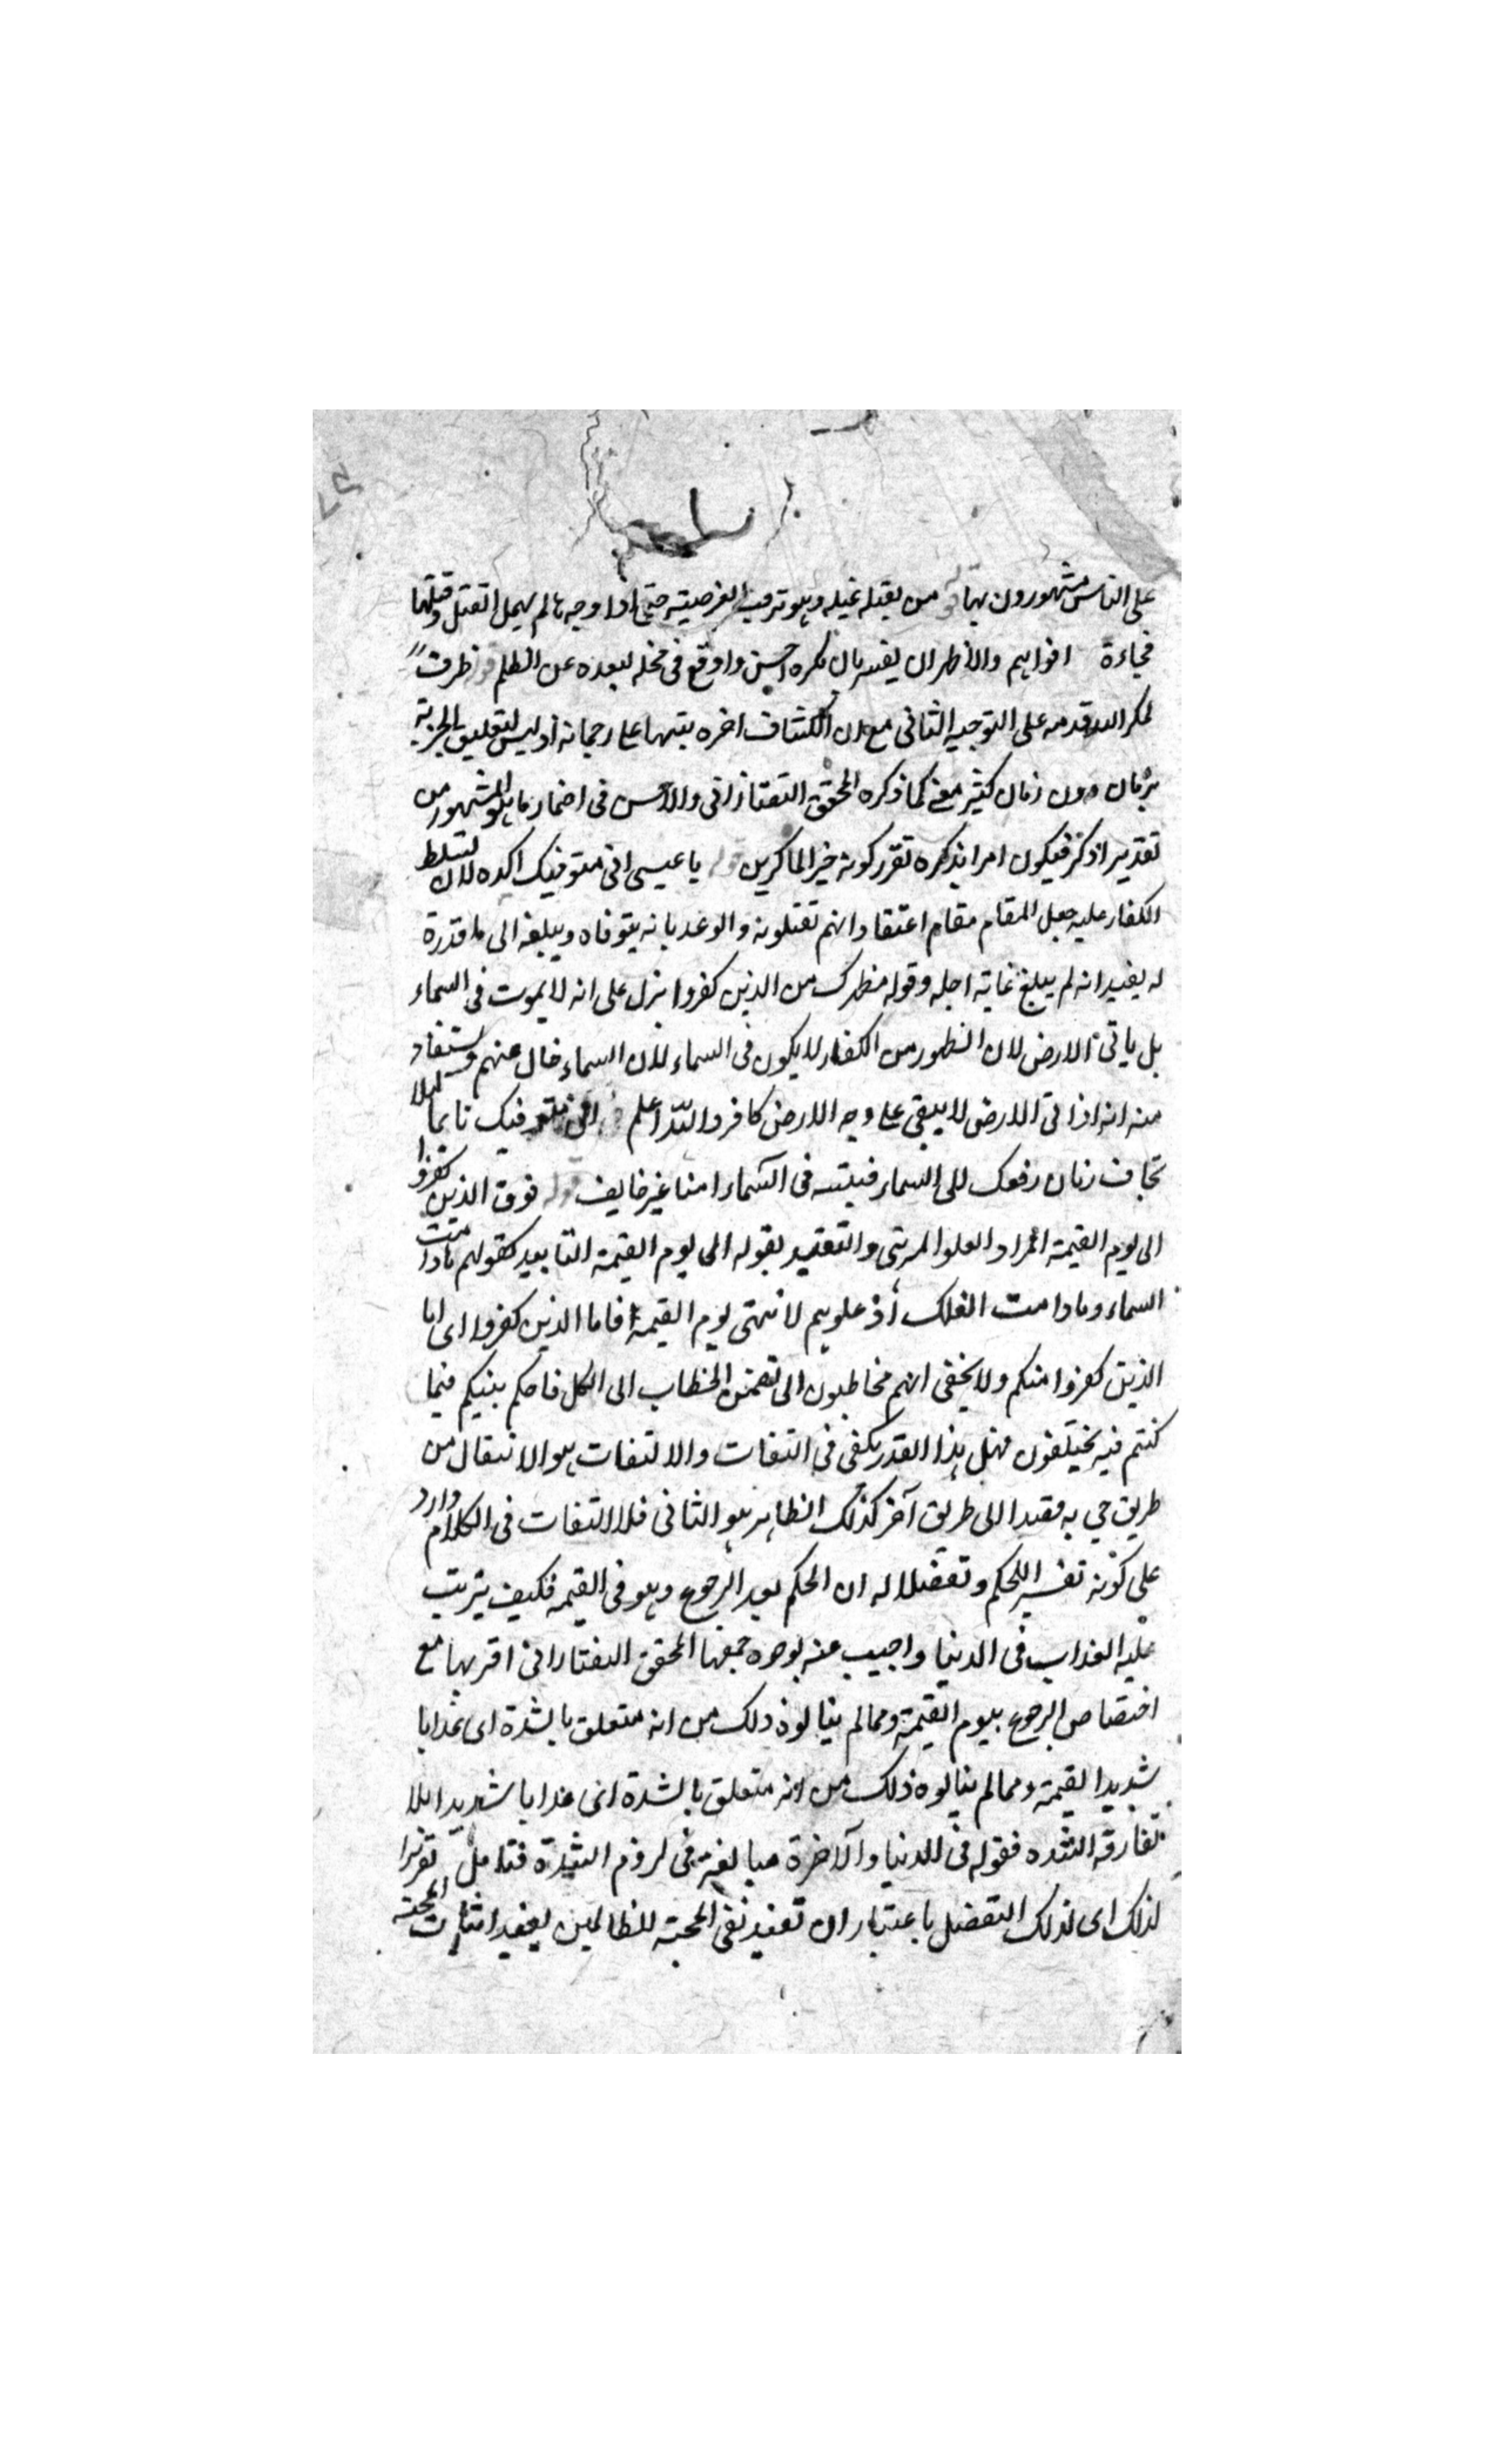 على الناس مشهورون بها قو من يقتله غيله وهو ترقب الفرصته حتى اذا وجه مالم يهمل القتل وقتلها
فجاءة افواهم والاظهر ان يفسر بان مكره احسن واوقع فى محله لبعده عن الظلم قو ظرف
لمكر الله قدمه على التوجيه الثانى مع ان الكشاف اخره بتبها على رجحانه اذ ليس لتعليق الجزية
بزمان دون زمان كثير معنى كما ذكره المحقق التفتازانى والاحسن فى اضمار ما هو المشهور من
تقدير اذكر فيكون امرا بذكره تقرر كونه خير الماكرين قوله يا عيسى انى متوفيك اكده لان لتسلط
الكفار عليه جعل المقام مقام اعتقاد انهم تقتلونه والوعد بانه يتوفاه ويبلغه الى ما قدرة
له يفيد انه لم يبلغ غاية اجله وقوله مطهرك من الذين كفروا ينزل على انه لا يموت فى السماء
بل ياتى الارض لان التطهر من الكفار لا يكون فى السماء لان السماء خال عنهم ويستفاد
منه انه اذا اتى الارض لا يبقى على وجه الارض كافر والله اعلم انى متوفيك نايما ليلا
تخاف زمان رفعك الى السماء فينتبه فى السماء امنا غير خايف قوله فوق الذين كفروا
الى يوم القيمة المراد العلو المرتبى والتقييد بقوله الى يوم القيمة التابيد كقولهم ما دامت
السماء وما دامت الفلك اذ علوهم لا ينتهى يوم القيمة فاما الذين كفروا اى اما
الذين كفروا منكم ولا يخفى انهم مخاطبون الى تضمن الخطاب الى الكل فاحكم بينكم فيما
كنتم فيه يختلفون فهل هذا القدر يكفى فى التفات والالتفات هو الانتقال من
طريق جي به مقيدا الى طريق آخر كذلك الظاهر هو الثانى فلا التفات فى الكلام وارد
على كونه تفسير اللحكم وتفضيلا له ان الحكم بعد الرجوع وهو فى القيمه فكيف يترتب
عليه العذاب فى الدنيا واجيب عنه بوجوه جمعها المحقق التفتازانى اقربها مع
اختصاص الرجوع بيوم القيمة ومالم ينالوه ذلك من انه متعلق بالشدة اى عذابا
شديدا القيمة ومالم ينالوه ذلك من انه متعلق بالشدة اى عذابا شديدا لا
تفارقه الشده فقوله فى الدنيا والآخرة مبالغة فى لزوم الشدة فتامل تقريرا
لذلك اى لذلك التفضل باعتبار ان تفيد نفى المحبة للظالمين يفيد اثبات المحبة